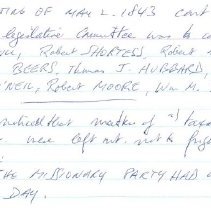 TING OF MAY 2. 1843 cont
legislative Committee was to co
Robert SHORTESS, Robert
BEERS, Thomas J. HUBBARD,
NEIL, Robert MOORE, Wm M.
noticed that matter of "taxe
were left out. not to frigh
THE MISSIONARY PARTY HAD
DAY.